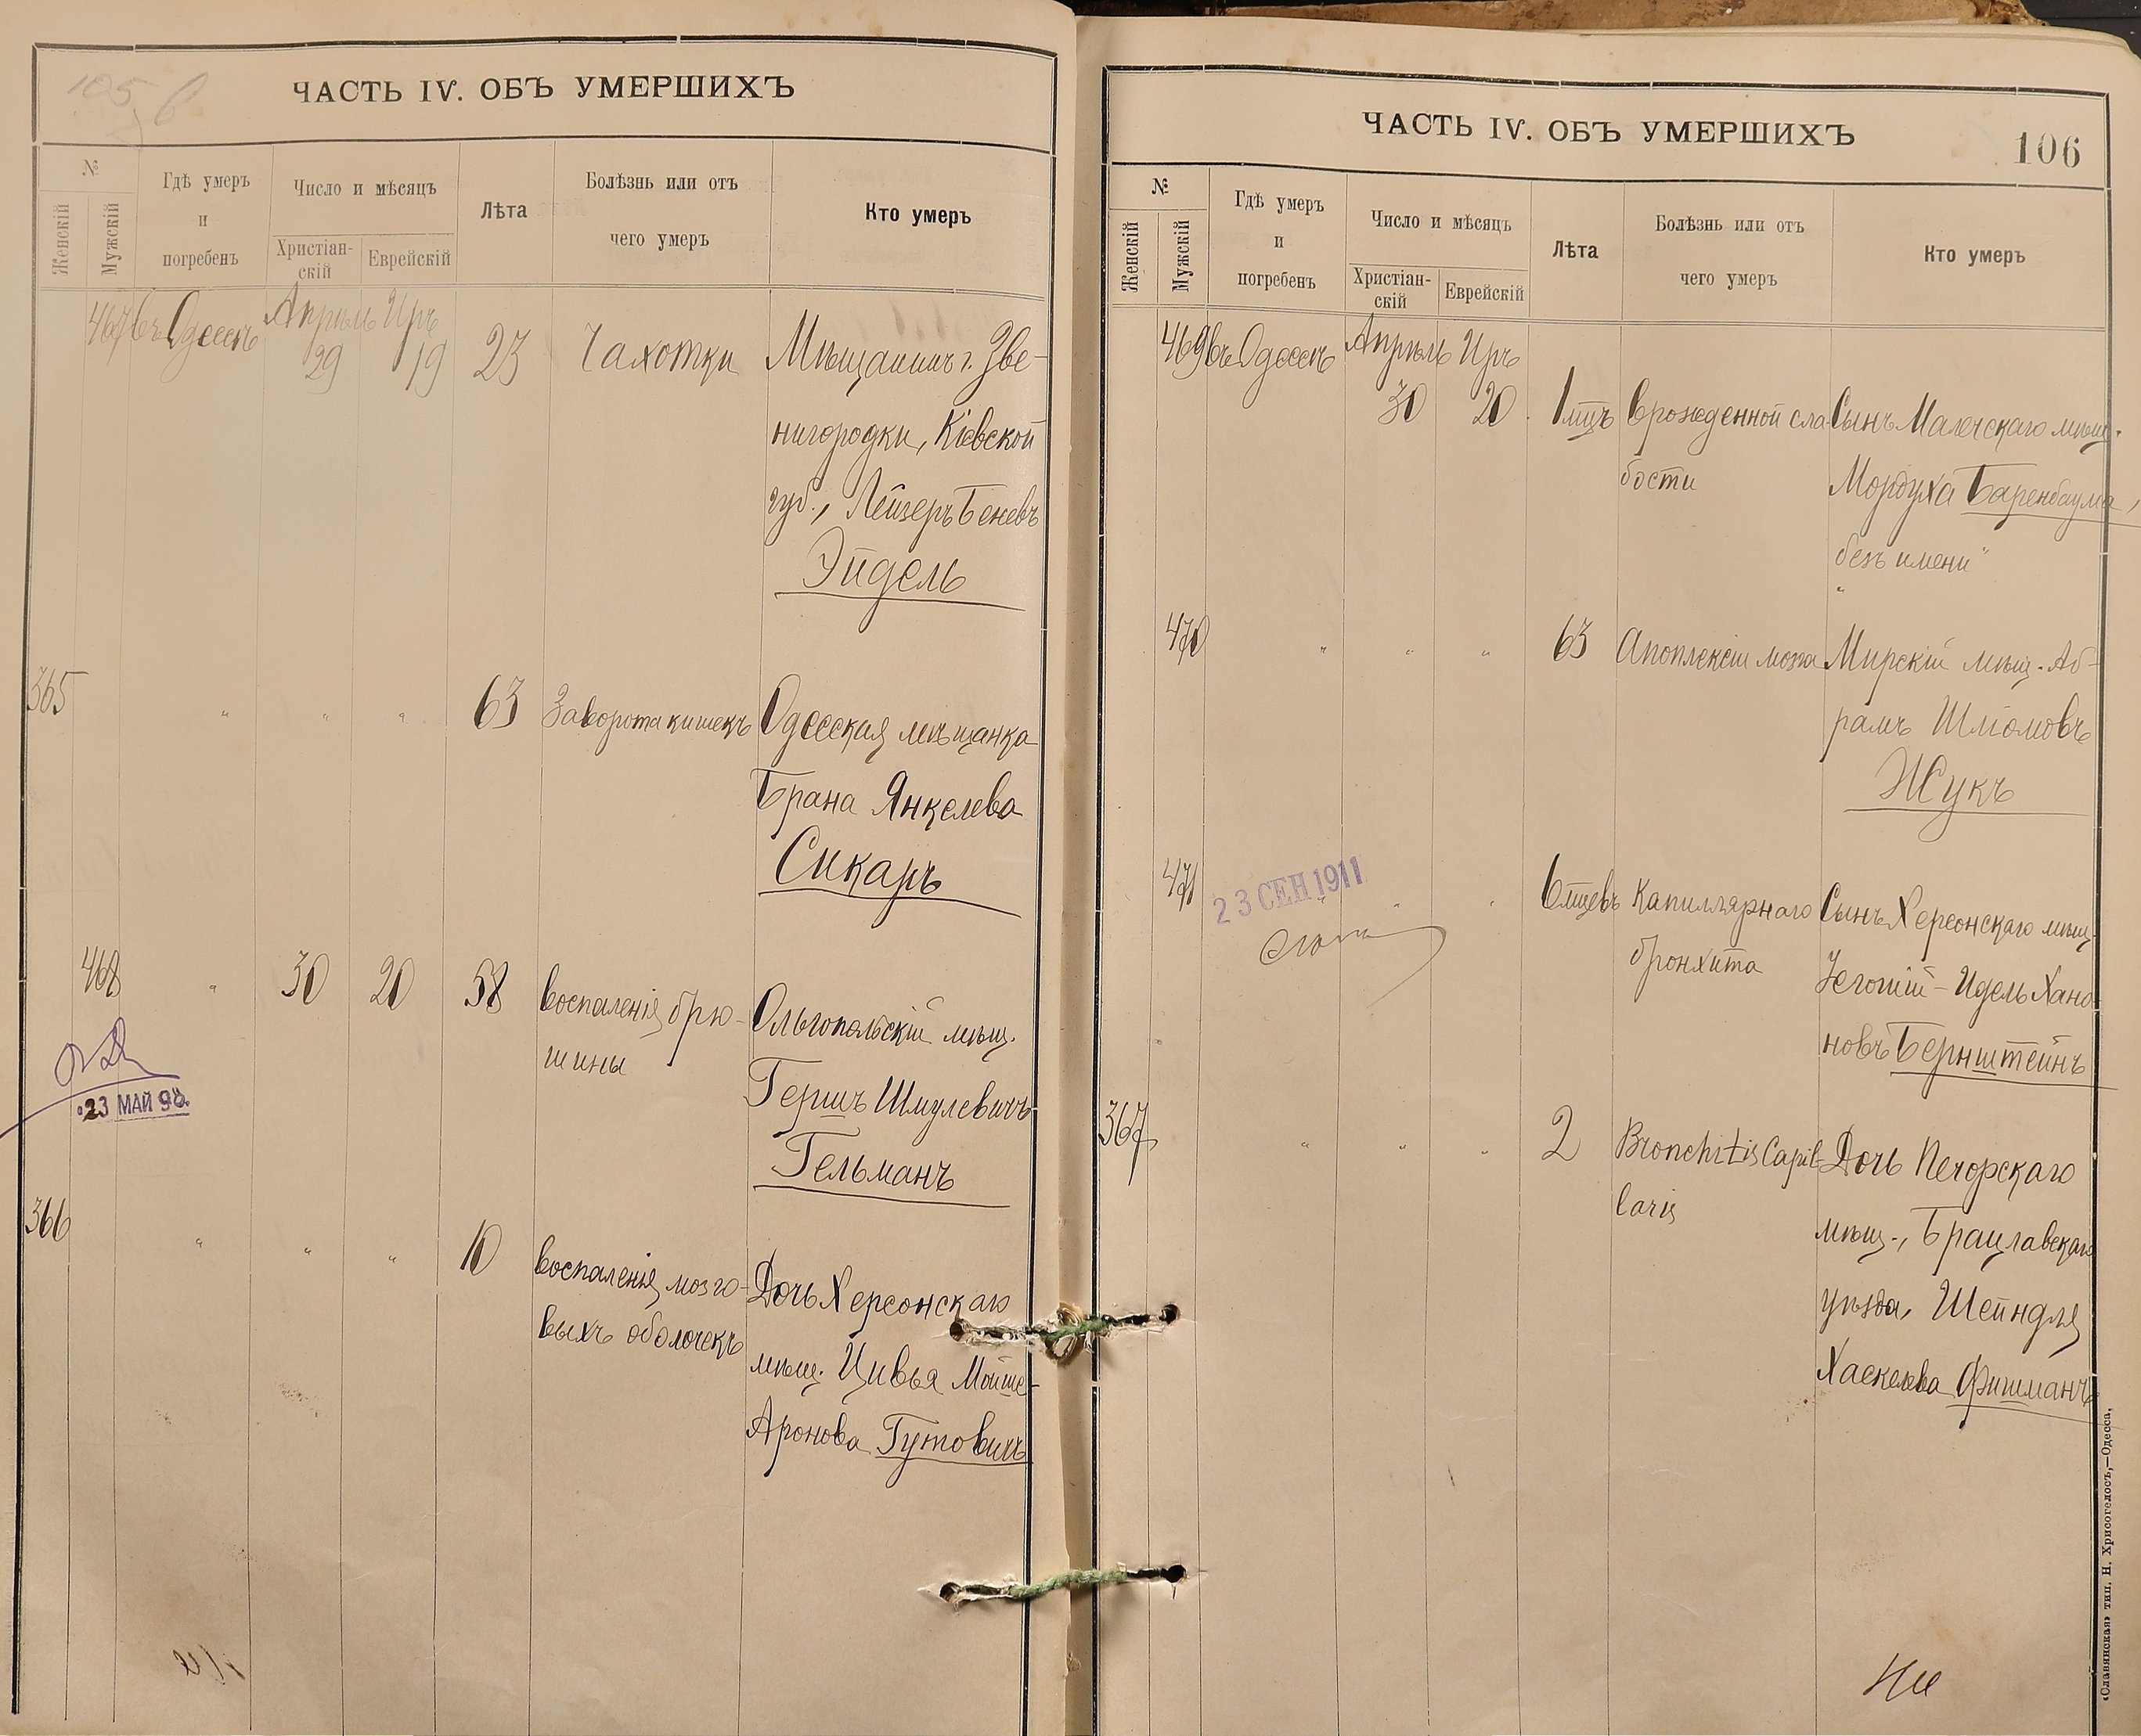 ЧАСТЬ IV. ОБЪ УМЕРШИХЪ
№
Женскій
Мужскій
Гдѣ умеръ
и
погребенъ
Число и мѣсяцъ
Христіан-
скій
Еврейскій
Лѣта
Болѣзнь или отъ
чего умеръ
Кто умеръ
467 въ Одессѣ Апрѣль Иръ
29 19 23 Чахотки Мѣщанинъ г. Зве-
нигородки, Кіевской
губ., Лейзеръ Беневъ
Эйдель
365 " " " 63 Заворота кишекъ Одесская мѣщанка
Брана Янкелева
Сикаръ
468 " 30 20 58 воспаленія брю- Ольгопольскій мѣщ.
шины
Гершъ Шмулевичъ
Гельманъ
23 МАЙ 98.
366 " " " 10 воспаленія мозго- Дочь Херсонскаго
выхъ оболочекъ мѣщ. Цивья Мойше-
Аронова Гутовичъ
ЧАСТЬ IV. ОБЪ УМЕРШИХЪ
106
№
Женскій
Мужскій
Гдѣ умеръ
и
погребенъ
Число и мѣсяцъ
Христіан-
скій
Еврейскій
Лѣта
Болѣзнь или отъ
чего умеръ
Кто умеръ
469 въ Одессѣ Апрѣль Иръ
30 20 1 мцъ врожденной сла- Сынъ Малечскаго мѣщ.
бости Мордуха Баренбаума,
безъ имени"
470 " " " 63 Апоплексіи мозга Мирскій мѣщ. Аб-
рамъ Шліомовъ
Жукъ
471 " " " 6 мцевъ Капиллярнаго Сынъ Херсонскаго мѣщ.
23 СЕН 1911
бронхита Идель Хано-
новъ Бернштейнъ
367 " " " 2 Bronchitis Capil- Дочь Печорскаго
laris мѣщ., Брацлавскаго
уѣзда, Шейндля
Хаскелева Фишманъ
«Славянская» тип. Н. Хрисогелосъ,—Одесса.